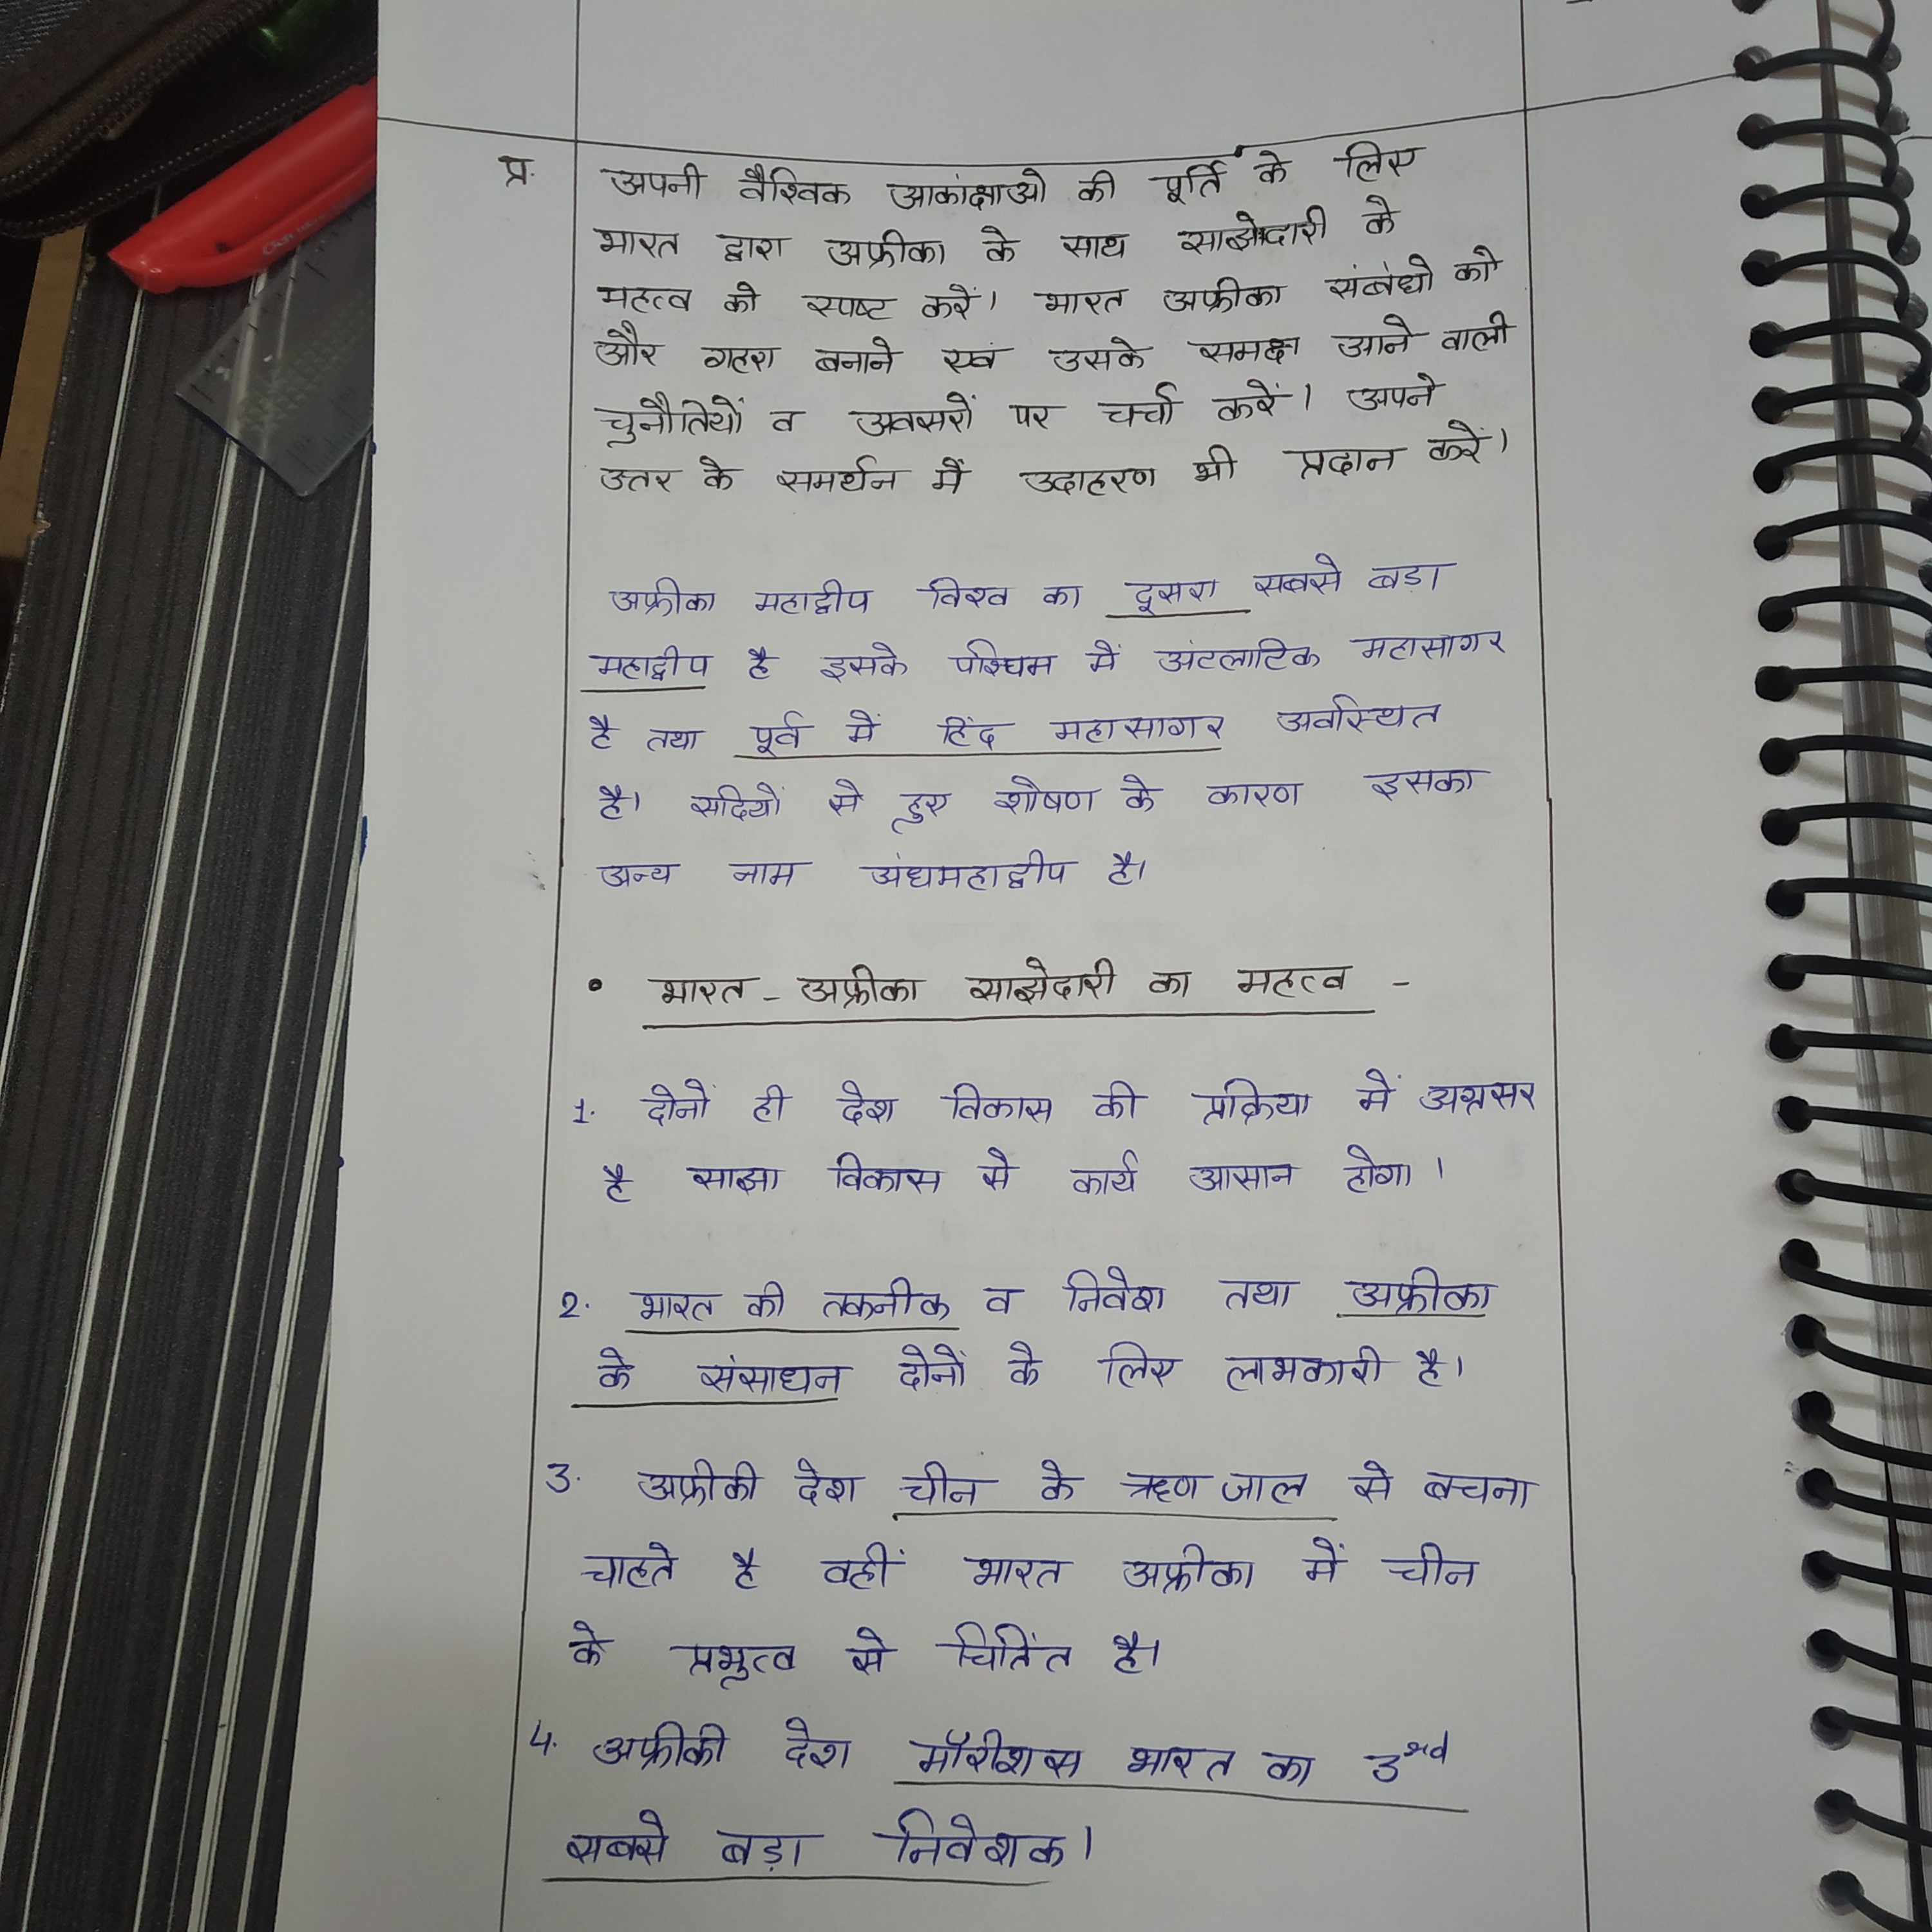 प्र.
अपनी वैश्विक आकांक्षाओ की पूर्ति के लिए
भारत द्वारा अफ्रीका के साथ साझेदारी के
महत्व को स्पष्ट करें। भारत अफ्रीका संबंधो को
और गहरा बनाने एवं उसके समक्ष आने वाली
चुनौतियों व अवसरों पर चर्चा करें। अपने
उत्तर के समर्थन में उदाहरण भी प्रदान करें।
अफ्रीका महाद्वीप विश्व का दूसरा सबसे बड़ा
महाद्वीप है इसके पश्चिम में अंटलाटिक महासागर
है तथा पूर्व में हिंद महासागर अवस्थित
है। सदियों से हुए शोषण के कारण इसका
अन्य नाम अंधमहाद्वीप है।
• भारत - अफ्रीका साझेदारी का महत्व -
1. दोनों ही देश विकास की प्रक्रिया में अग्रसर
है साझा विकास से कार्य आसान होगा।
2. भारत की तकनीक व निवेश तथा अफ्रीका
के संसाधन दोनों के लिए लाभकारी है।
3. अफ्रीकी देश चीन के ऋण जाल से बचना
चाहते है वहीं भारत अफ्रीका में चीन
के प्रभुत्व से चिंतित है।
4. अफ्रीकी देश मॉरीशस भारत का 3rd
सबसे बड़ा निवेशक।